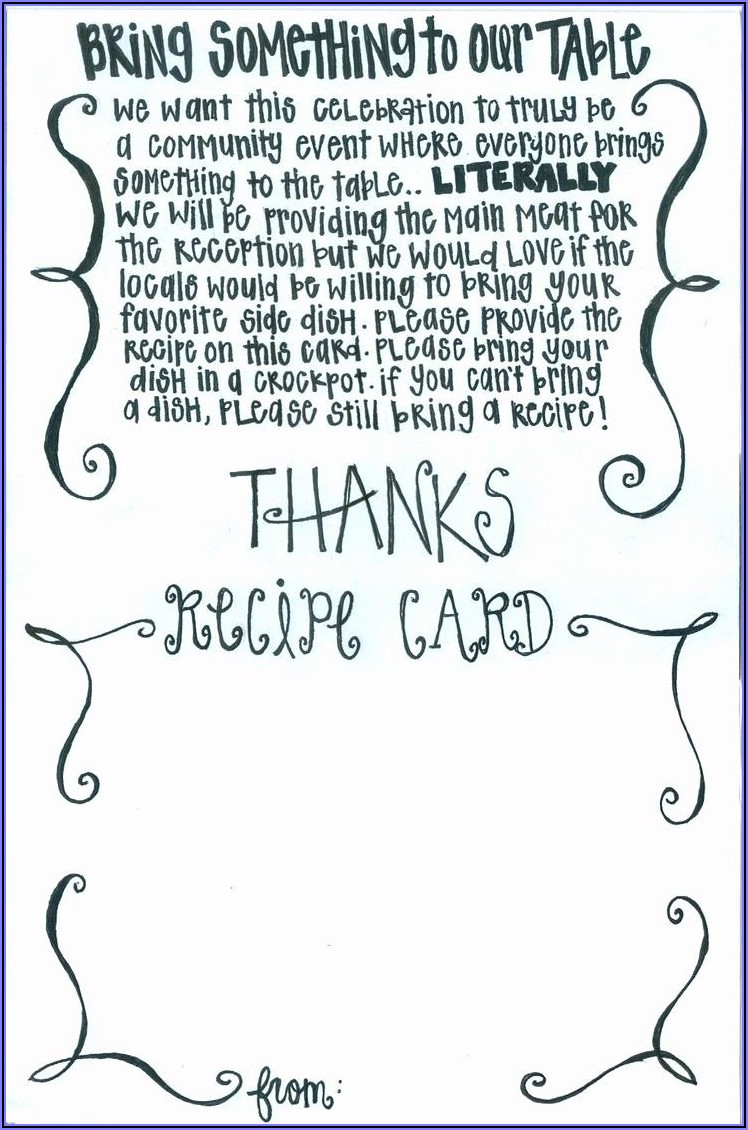 BRiNg SOMEtHiNg to OUR TAbLE
We want this CELEbRAtion to tRULY be
a COMMUnity event WHERE everyone brings
SOMEtHing to the tabLe.. LITERALLY
We WiLL be PRoviding the Main Meat foR
the RECEPtion but We WOULd LOVE if the
LOCaLs WOULd be WiLLing to bRing YOUR
favorite Side DisH. PLEase PROVide the
RECiPE on this CARd. PLEase bring youR
DisH in a CROCKPot. if you can't bring
a DisH, PLEase StiLL bRing a RECiPe!
THANKS
ReCiPe CARD
from: